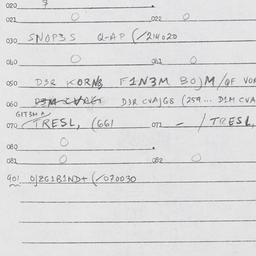 020 7
021 O 022 O
030 SNOP3S Q-AP (/214020
040 O 042 O
050 D3R KORN3 F1N3M BOJM/OF VOR
060 D3R CVA/G8 (259... D1M CVA
GITSM A
070 TRESL, (661 071 - / TRESL,
080 O
081 O 082 O
901 O/8G1B1ND+ (/070030